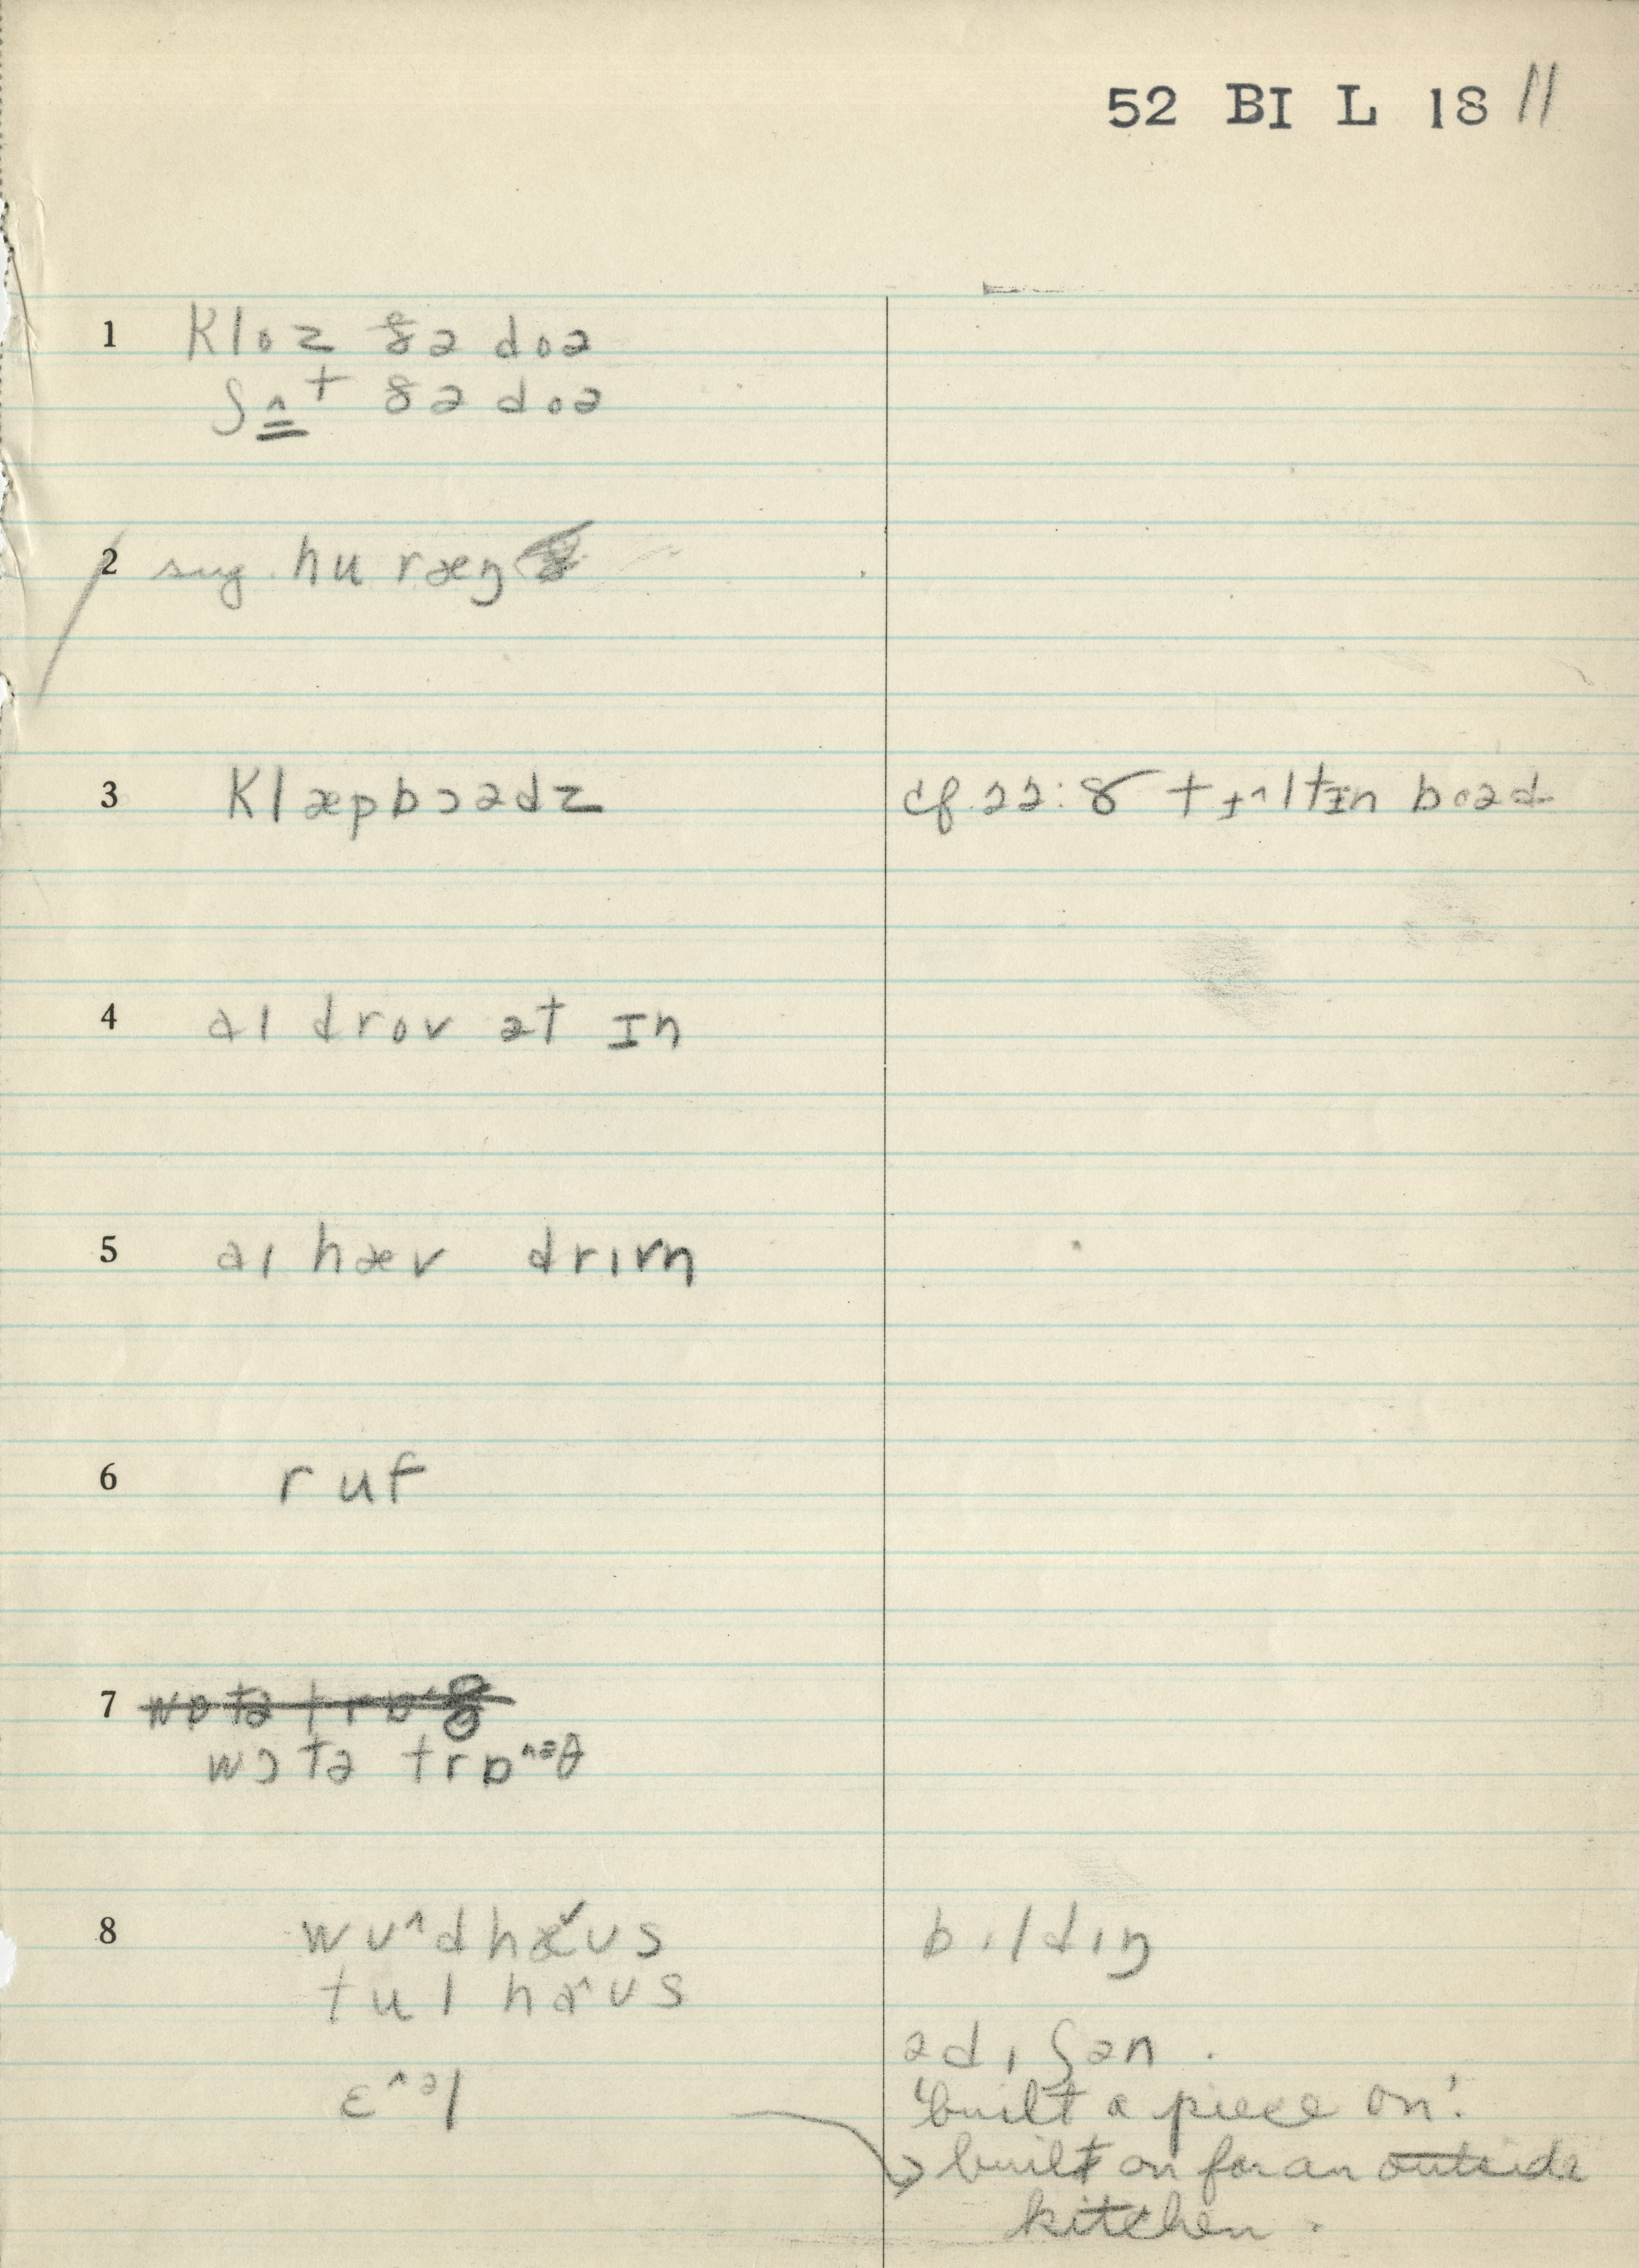 52 BI L 18 11
1 kloz ðə doə
ʃʌt ðə doə
2 sug. hu ræŋ
3 klæpbɔədz cf. 22:8 tɪ^ltɪn boəd
4 aɪ drov ət ɪn
5 aɪ hæv drɪvn
6 ruf
7
wɔtə trɒ^əθ
8 wʊ^dhæ˅ʊs bɪldɪŋ
tul ha^ʊs
ədɪʃən.
ɛ^əl 'built a piece on'.
built on for an outside
kitchen.